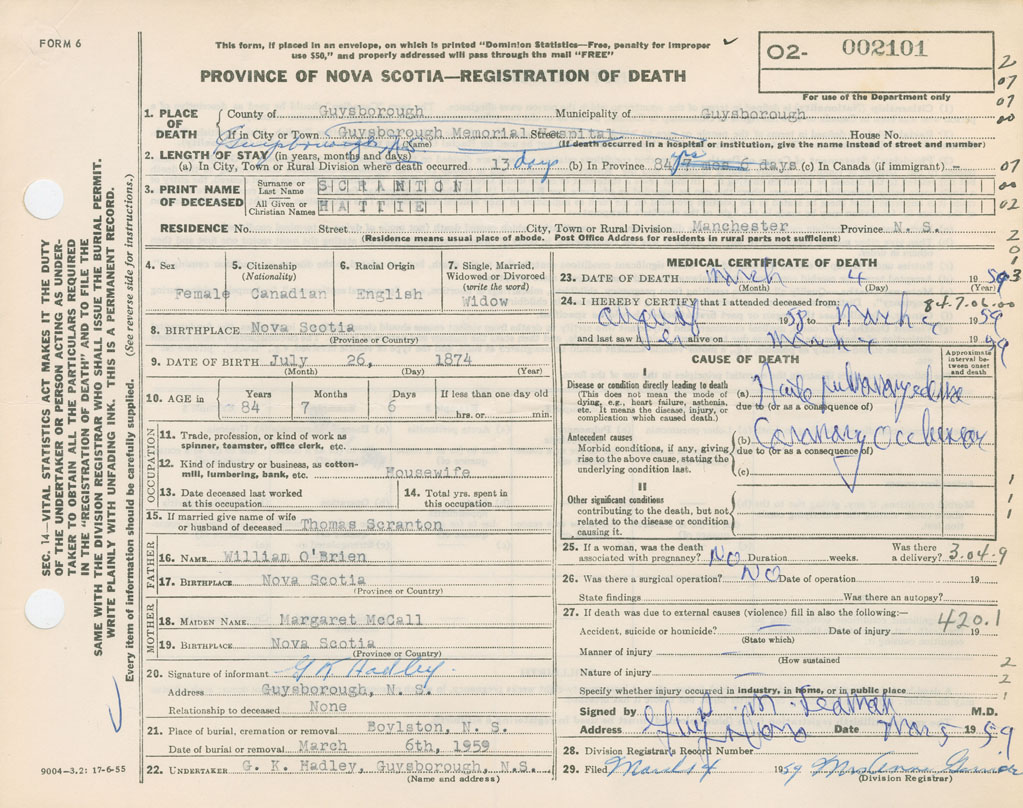 FORM 6
This form, if placed in an envelope, on which is printed "Dominion Statistics—Free, penalty for improper
use $50," and properly addressed will pass through the mail "FREE"
PROVINCE OF NOVA SCOTIA—REGISTRATION OF DEATH
02- 002101
For use of the Department only
2
07
07
00
07
00
02
2
0
1
3
SEC. 14—VITAL STATISTICS ACT MAKES IT THE DUTY
OF THE UNDERTAKER OR PERSON ACTING AS UNDER-
TAKER TO OBTAIN ALL THE PARTICULARS REQUIRED
IN THE "REGISTRATION OF DEATH" AND TO FILE THE
SAME WITH THE DIVISION REGISTRAR WHO SHALL ISSUE THE BURIAL PERMIT.
WRITE PLAINLY WITH UNFADING INK. THIS IS A PERMANENT RECORD.
Every item of information should be carefully supplied. (See reverse side for instructions.)
1. PLACE OF DEATH
County of Guysborough Municipality of Guysborough
If in City or Town Guysborough Memorial Hospital Street House No.
(Name) (If death occurred in a hospital or institution, give the name instead of street and number)
Guysborough, NS
2. LENGTH OF STAY (in years, months and days)
(a) In City, Town or Rural Division where death occurred 13 days (b) In Province 84 yrs 7 mos 6 days (c) In Canada (if immigrant) -
3. PRINT NAME OF DECEASED
Surname or Last Name SCRANTON
All Given or Christian Names HATTIE
RESIDENCE No. Street City, Town or Rural Division Manchester Province N. S.
(Residence means usual place of abode. Post Office Address for residents in rural parts not sufficient)
4. Sex
Female
5. Citizenship
(Nationality)
Canadian
6. Racial Origin
English
7. Single, Married,
Widowed or Divorced
(write the word)
Widow
8. BIRTHPLACE Nova Scotia
(Province or Country)
9. DATE OF BIRTH July 26, 1874
(Month) (Day) (Year)
10. AGE in Years Months Days If less than one day old
84 7 6 hrs. or min.
OCCUPATION
11. Trade, profession, or kind of work as
spinner, teamster, office clerk, etc.
12. Kind of industry or business, as cotton-
mill, lumbering, bank, etc. Housewife
13. Date deceased last worked
at this occupation
14. Total yrs. spent in
this occupation
15. If married give name of wife
or husband of deceased Thomas Scranton
FATHER
16. NAME William O'Brien
17. BIRTHPLACE Nova Scotia
(Province or Country)
MOTHER
18. MAIDEN NAME Margaret McCall
19. BIRTHPLACE Nova Scotia
(Province or Country)
20. Signature of informant G K Hadley.
Address Guysborough, N. S.
Relationship to deceased None
21. Place of burial, cremation or removal Boylston, N. S.
Date of burial or removal March 6th, 1959
22. UNDERTAKER G. K. Hadley, Guysborough, N.S.
(Name and address)
9004-3.2: 17-6-55
MEDICAL CERTIFICATE OF DEATH
23. DATE OF DEATH March 4 1959
(Month) (Day) (Year)
84.7.06.00
24. I HEREBY CERTIFY that I attended deceased from:
August 1958 to March 4 1959
and last saw her alive on March 4 1959
CAUSE OF DEATH
Approximate
interval between
onset
and death
I
Disease or condition directly leading to death
(This does not mean the mode of
dying, e.g., heart failure, asthenia,
etc. It means the disease, injury, or
complication which caused death.)
(a) Acute pulmonary edema
due to (or as a consequence of)
Antecedent causes
Morbid conditions, if any, giving
rise to the above cause, stating the
underlying condition last.
(b) Coronary Occlusion
due to (or as a consequence of)
(c)
II
Other significant conditions
contributing to the death, but not
related to the disease or condition
causing it.
1
1
1
25. If a woman, was the death
associated with pregnancy? NO Duration weeks. Was there
a delivery? 3.04-9
26. Was there a surgical operation? NO Date of operation 19
State findings Was there an autopsy?
27. If death was due to external causes (violence) fill in also the following:—
420.1
Accident, suicide or homicide? — Date of injury 19
(State which)
Manner of injury —
(How sustained
Nature of injury —
Specify whether injury occurred in industry, in home, or in public place
2
2
1
Signed by M. Fedman M.D.
Address Guys Nova Date Mar 5 1959
28. Division Registrar's Record Number
29. Filed March 4 1959
(Division Registrar)